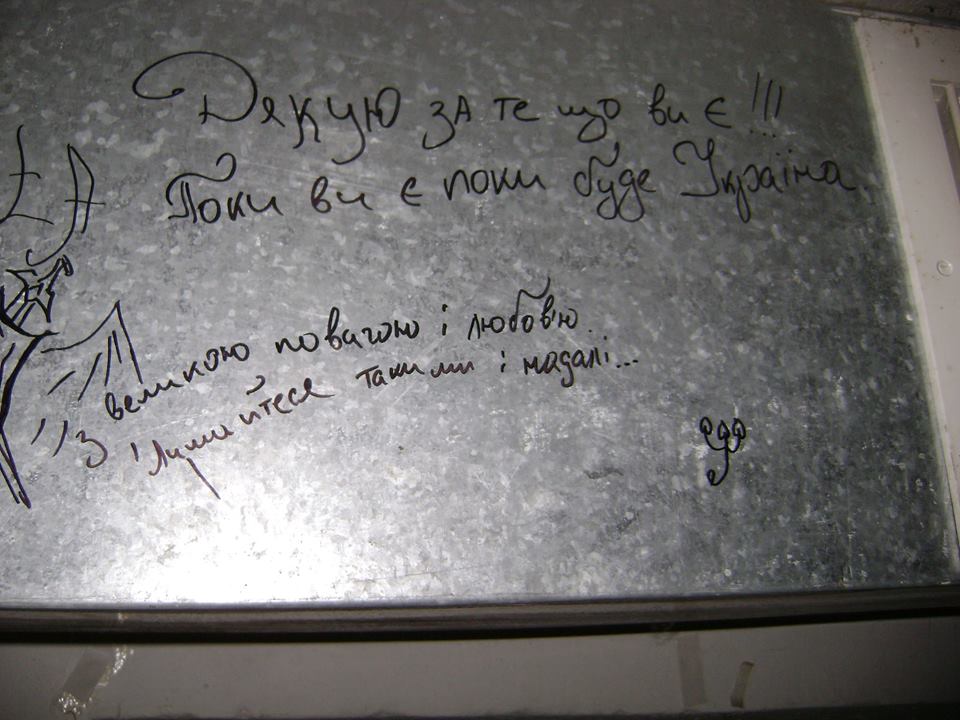 Дякую за те що ви є!!!
Поки ви є поки буде Україна.
З великою повагою і любов'ю.
Лишайтеся такими і надалі...